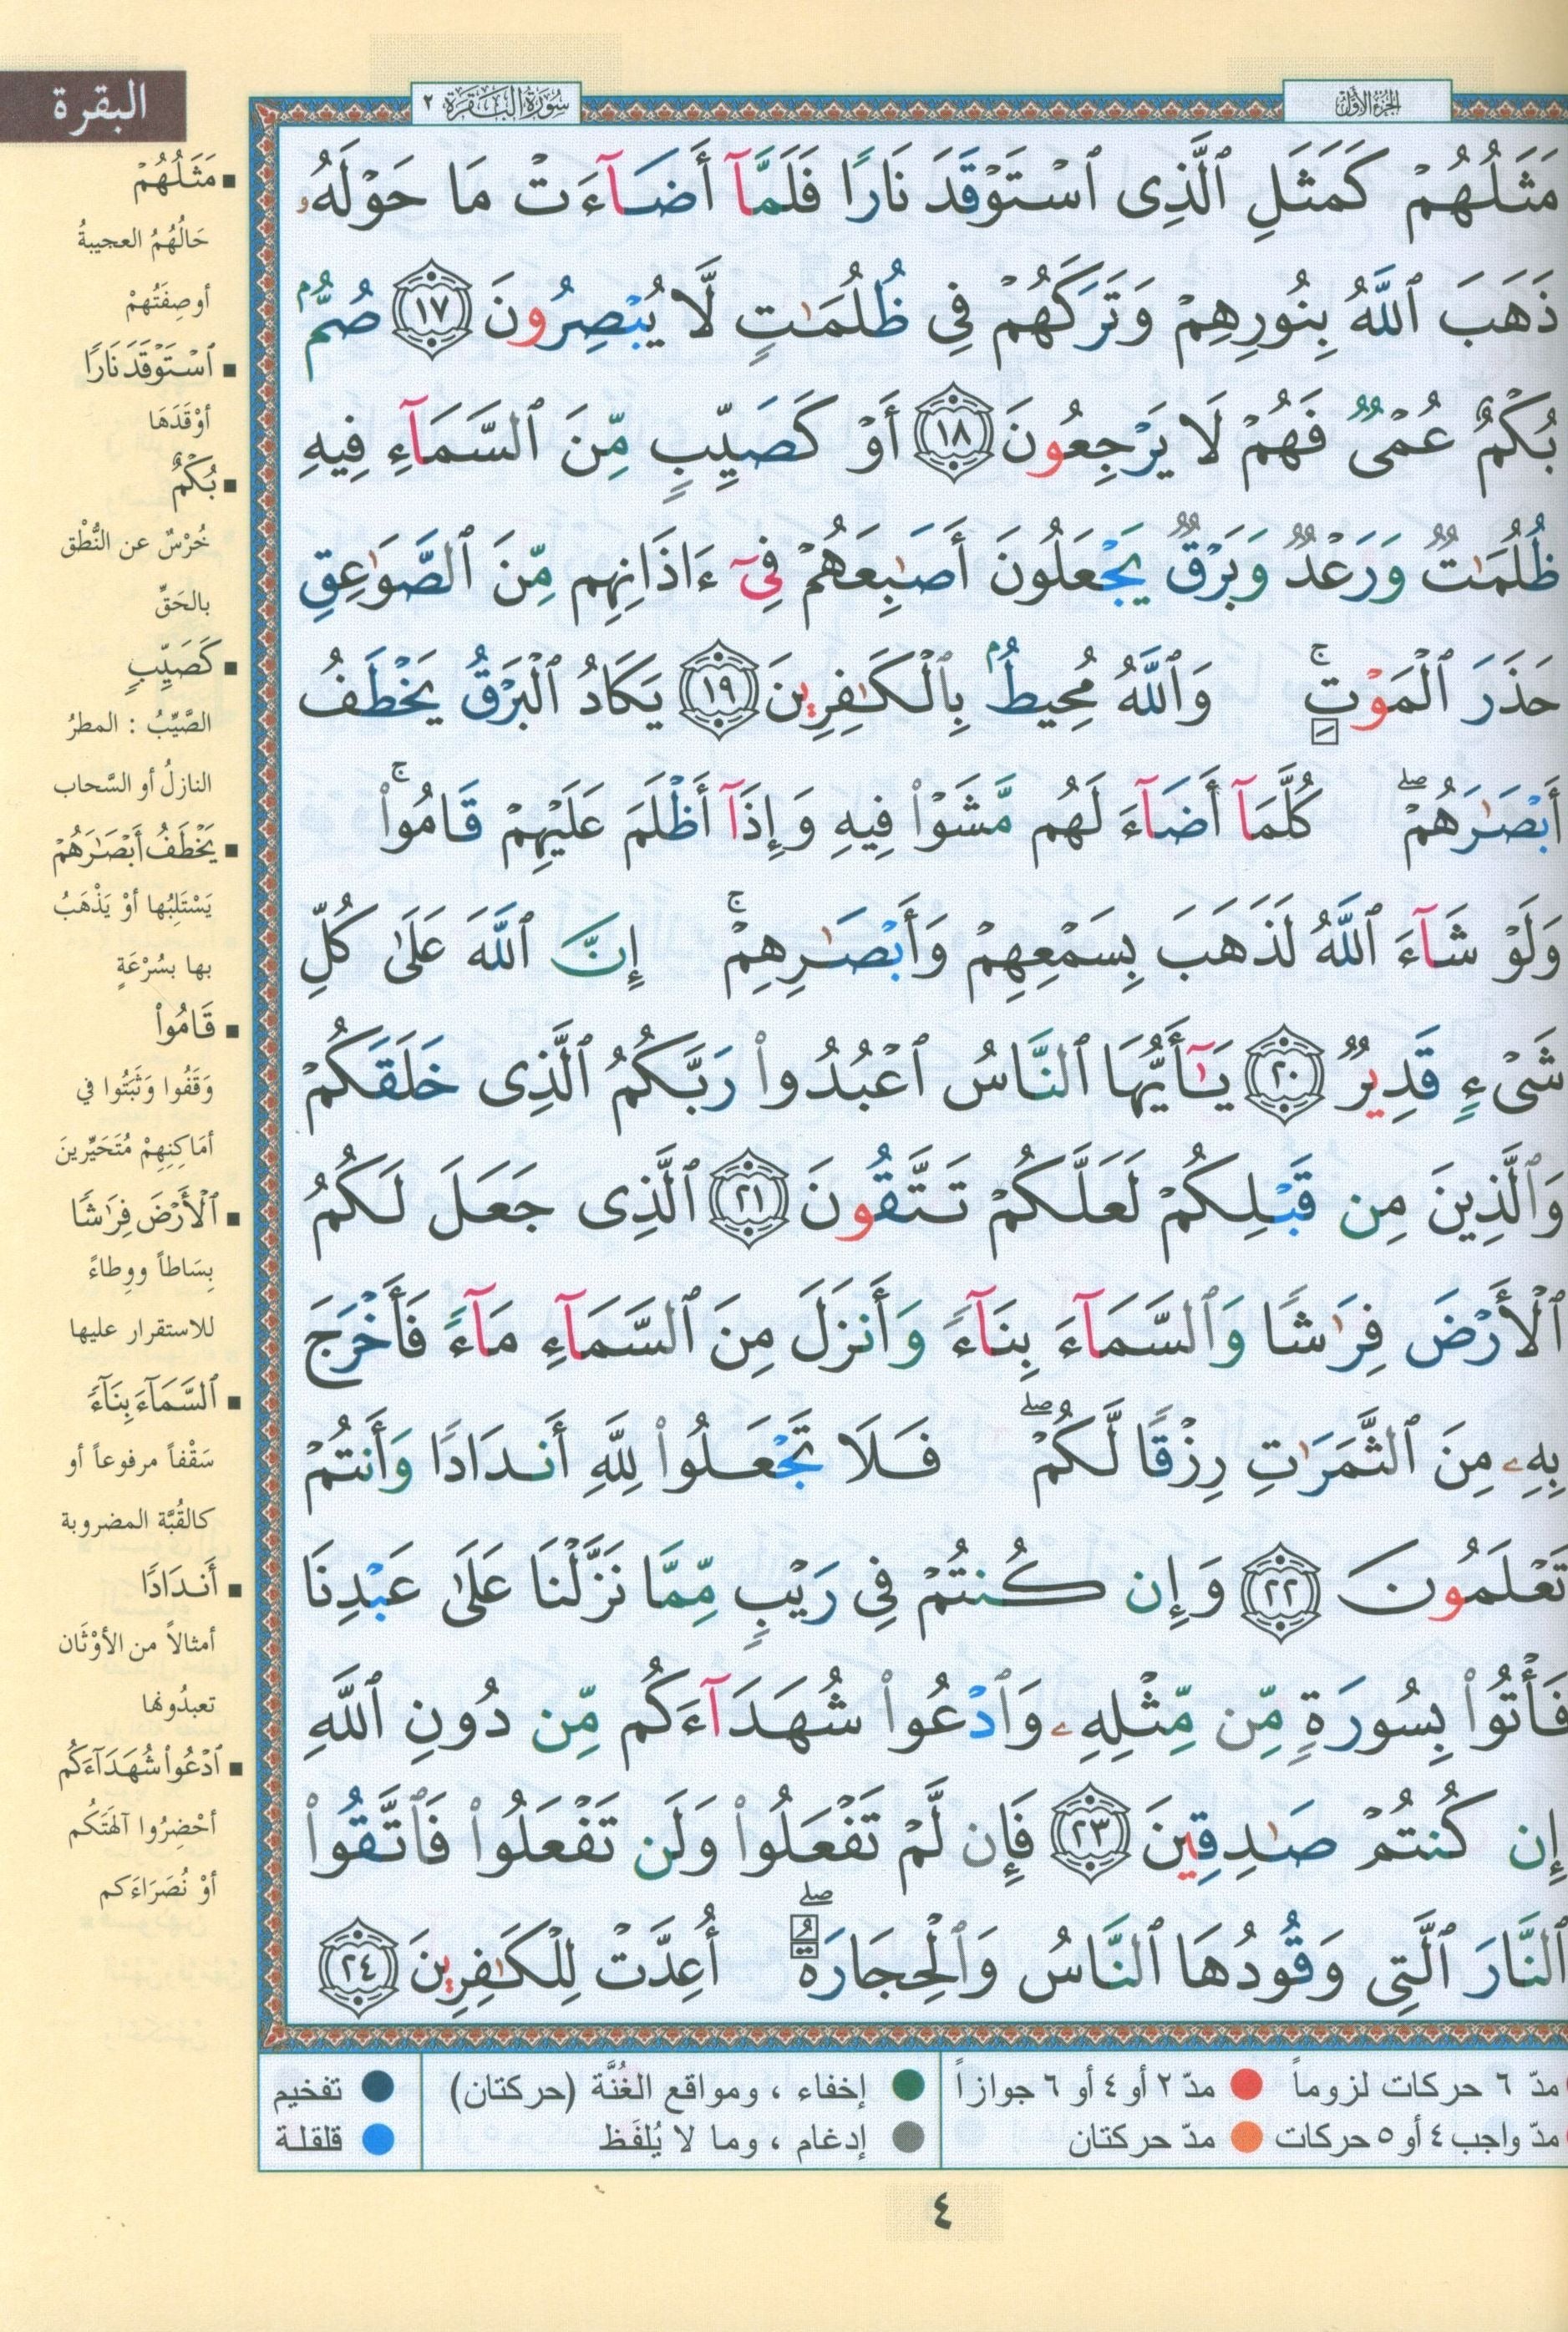 الجزء الأول
سورة البقرة ٢
البقرة
مَثَلُهُمْ كَمَثَلِ ٱلَّذِى ٱسْتَوْقَدَ نَارًا فَلَمَّآ أَضَآءَتْ مَا حَوْلَهُۥ
ذَهَبَ ٱللَّهُ بِنُورِهِمْ وَتَرَكَهُمْ فِى ظُلُمَٰتٍ لَّا يُبْصِرُونَ ١٧ صُمٌّۢ
بُكْمٌ عُمْىٌ فَهُمْ لَا يَرْجِعُونَ ١٨ أَوْ كَصَيِّبٍ مِّنَ ٱلسَّمَآءِ فِيهِ
ظُلُمَٰتٌ وَرَعْدٌ وَبَرْقٌ يَجْعَلُونَ أَصَٰبِعَهُمْ فِىٓ ءَاذَانِهِم مِّنَ ٱلصَّوَٰعِقِ
حَذَرَ ٱلْمَوْتِ ۚ وَٱللَّهُ مُحِيطٌۢ بِٱلْكَٰفِرِينَ ١٩ يَكَادُ ٱلْبَرْقُ يَخْطَفُ
أَبْصَٰرَهُمْ ۖ كُلَّمَآ أَضَآءَ لَهُم مَّشَوْا۟ فِيهِ وَإِذَآ أَظْلَمَ عَلَيْهِمْ قَامُوا۟ ۚ
وَلَوْ شَآءَ ٱللَّهُ لَذَهَبَ بِسَمْعِهِمْ وَأَبْصَٰرِهِمْ ۚ إِنَّ ٱللَّهَ عَلَىٰ كُلِّ
شَىْءٍ قَدِيرٌ ٢٠ يَٰٓأَيُّهَا ٱلنَّاسُ ٱعْبُدُوا۟ رَبَّكُمُ ٱلَّذِى خَلَقَكُمْ
وَٱلَّذِينَ مِن قَبْلِكُمْ لَعَلَّكُمْ تَتَّقُونَ ٢١ ٱلَّذِى جَعَلَ لَكُمُ
ٱلْأَرْضَ فِرَٰشًا وَٱلسَّمَآءَ بِنَآءً وَأَنزَلَ مِنَ ٱلسَّمَآءِ مَآءً فَأَخْرَجَ
بِهِۦ مِنَ ٱلثَّمَرَٰتِ رِزْقًا لَّكُمْ ۖ فَلَا تَجْعَلُوا۟ لِلَّهِ أَندَادًا وَأَنتُمْ
تَعْلَمُونَ ٢٢ وَإِن كُنتُمْ فِى رَيْبٍ مِّمَّا نَزَّلْنَا عَلَىٰ عَبْدِنَا
فَأْتُوا۟ بِسُورَةٍ مِّن مِّثْلِهِۦ وَٱدْعُوا۟ شُهَدَآءَكُم مِّن دُونِ ٱللَّهِ
إِن كُنتُمْ صَٰدِقِينَ ٢٣ فَإِن لَّمْ تَفْعَلُوا۟ وَلَن تَفْعَلُوا۟ فَٱتَّقُوا۟
ٱلنَّارَ ٱلَّتِى وَقُودُهَا ٱلنَّاسُ وَٱلْحِجَارَةُ ۖ أُعِدَّتْ لِلْكَٰفِرِينَ ٢٤
مَثَلُهُمْ
حَالُهُمُ العجيبةُ
أو صِفَتُهمْ
ٱسْتَوْقَدَ نَارًا
أوْقَدَهَا
بُكْمٌ
خُرْسٌ عن النُّطْق
بالحَقِّ
كَصَيِّبٍ
الصَّيِّبُ : المطرُ
النازلُ أو السَّحاب
يَخْطَفُ أَبْصَٰرَهُمْ
يَسْتَلِبُها أوْ يَذْهَبُ
بها بسُرْعَةٍ
قَامُوا۟
وَقَفُوا وَثَبَتُوا في
أمَاكِنِهِمْ مُتَحَيِّرينَ
ٱلْأَرْضَ فِرَٰشًا
بِسَاطاً ووِطاءً
للاستقرار عليها
ٱلسَّمَآءَ بِنَآءً
سَقْفاً مرفوعاً أو
كالقُبَّة المضروبة
أَندَادًا
أمثالاً من الأوْثَان
تعبدُونها
ٱدْعُوا۟ شُهَدَآءَكُم
أحْضِرُوا آلهَتَكُم
أوْ نُصَرَاءَكم
مدّ ٦ حركات لزوماً مدّ ٢ أو ٤ أو ٦ جوازاً إخفاء ، ومواقع الغُنَّة (حركتان) تفخيم
مدّ واجب ٤ أو ٥ حركات مدّ حركتان إدغام ، وما لا يُلفَظ قلقلة
٤